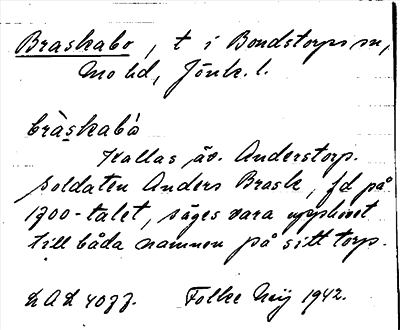 Braskabo, t i Bondstorps sn,
Mo hd, Jönk. l.
bràskabó
Kallas äv. Anderstorp.
Soldaten Anders Brask, fd på
1700-talet, säges vara upphovet
till båda namnen på sitt torp.
LAL 4077. Folke Neij 1942.